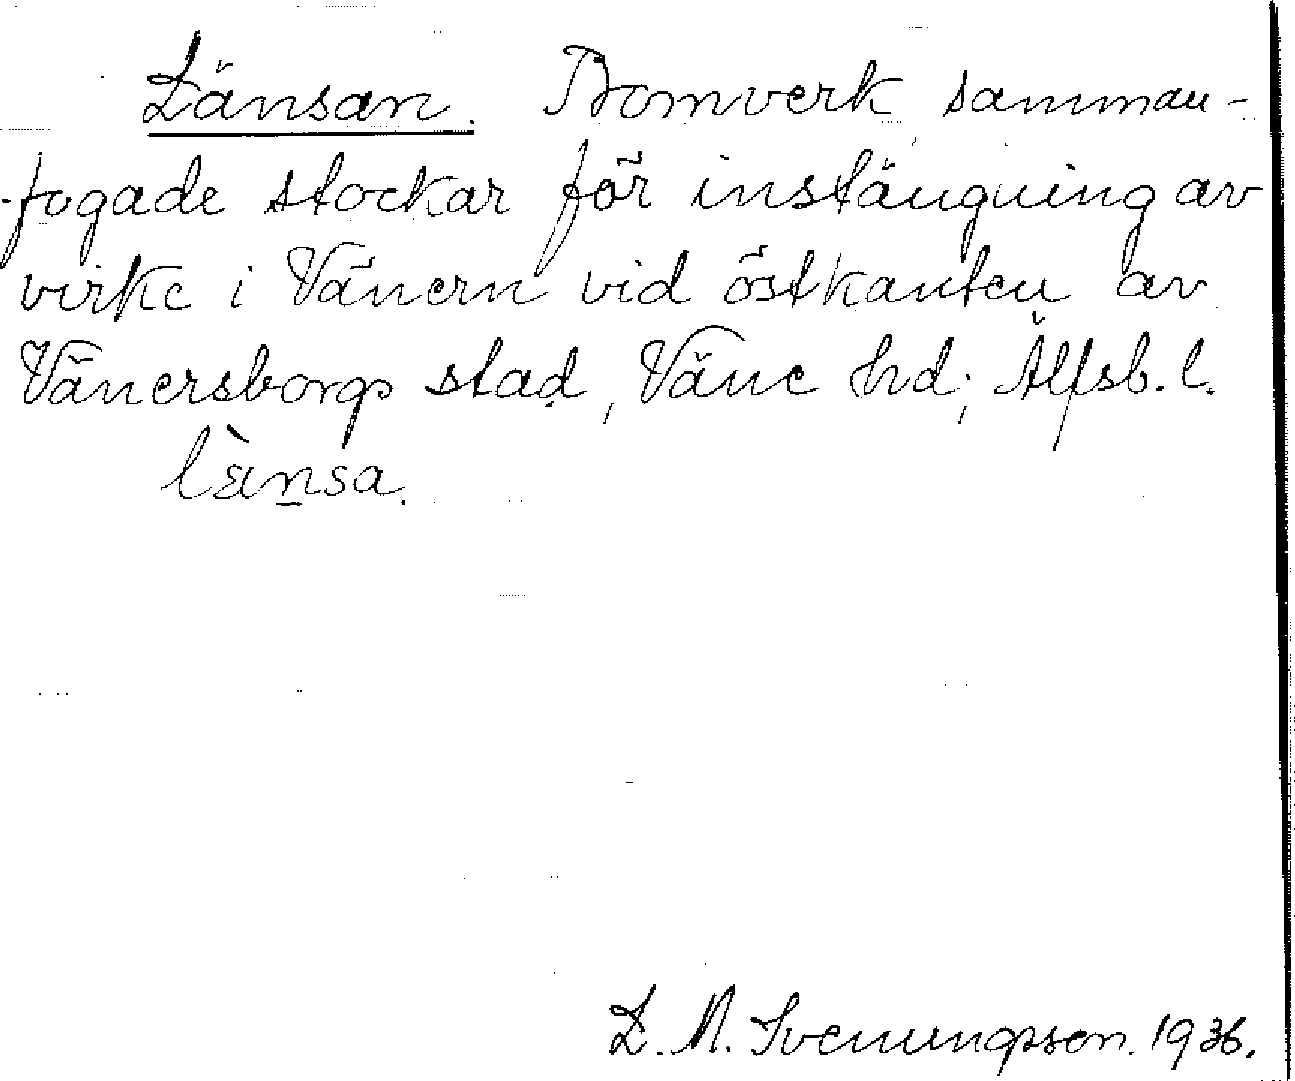 Länsan. Bomverk, samman-
fogade stockar för instängning av
virke i Vänern vid östkanten av
Vänersborgs stad, Väne hd; Älfsb. l.
lὲn̲sa.
L. M. Svenungsson. 1936.